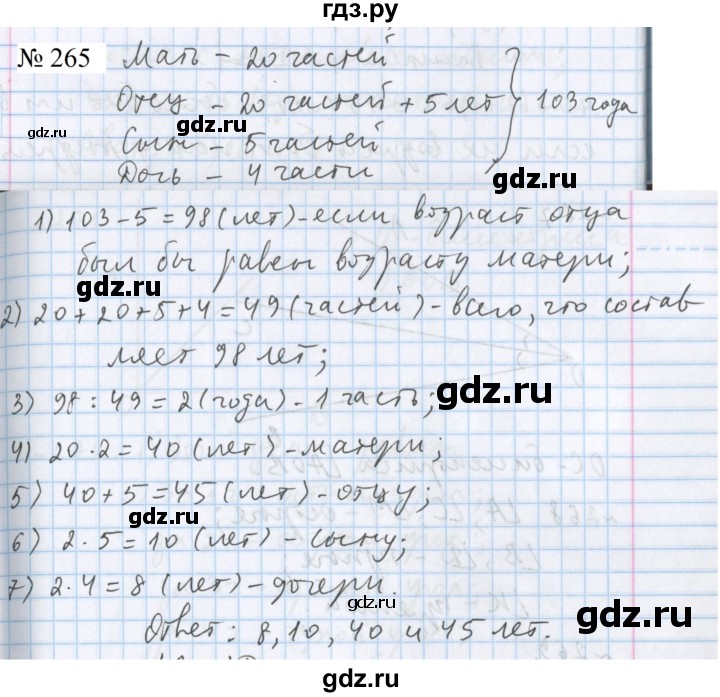 гдз.ру
№ 265 Мать – 20 частей
Отец – 20 частей + 5 лет } 103 года
gdz.ru gdz.ru
Сын – 5 частей
Дочь – 4 части
1) 103 – 5 = 98 (лет) – если возраст отца
был бы равен возрасту матери;
gdz.ru
2) 20 + 20 + 5 + 4 = 49 (частей) – всего, что состав
ляет 98 лет;
3) 98 : 49 = 2 (года) – 1 часть;
gdz.ru
4) 20 · 2 = 40 (лет) – матери;
5) 40 + 5 = 45 (лет) – отцу;
6) 2 · 5 = 10 (лет) – сыну;
gdz.ru
7) 2 · 4 = 8 (лет) – дочери.
gdz.ru
Ответ: 8, 10, 40 и 45 лет.
gdz.ru
gdz.ru